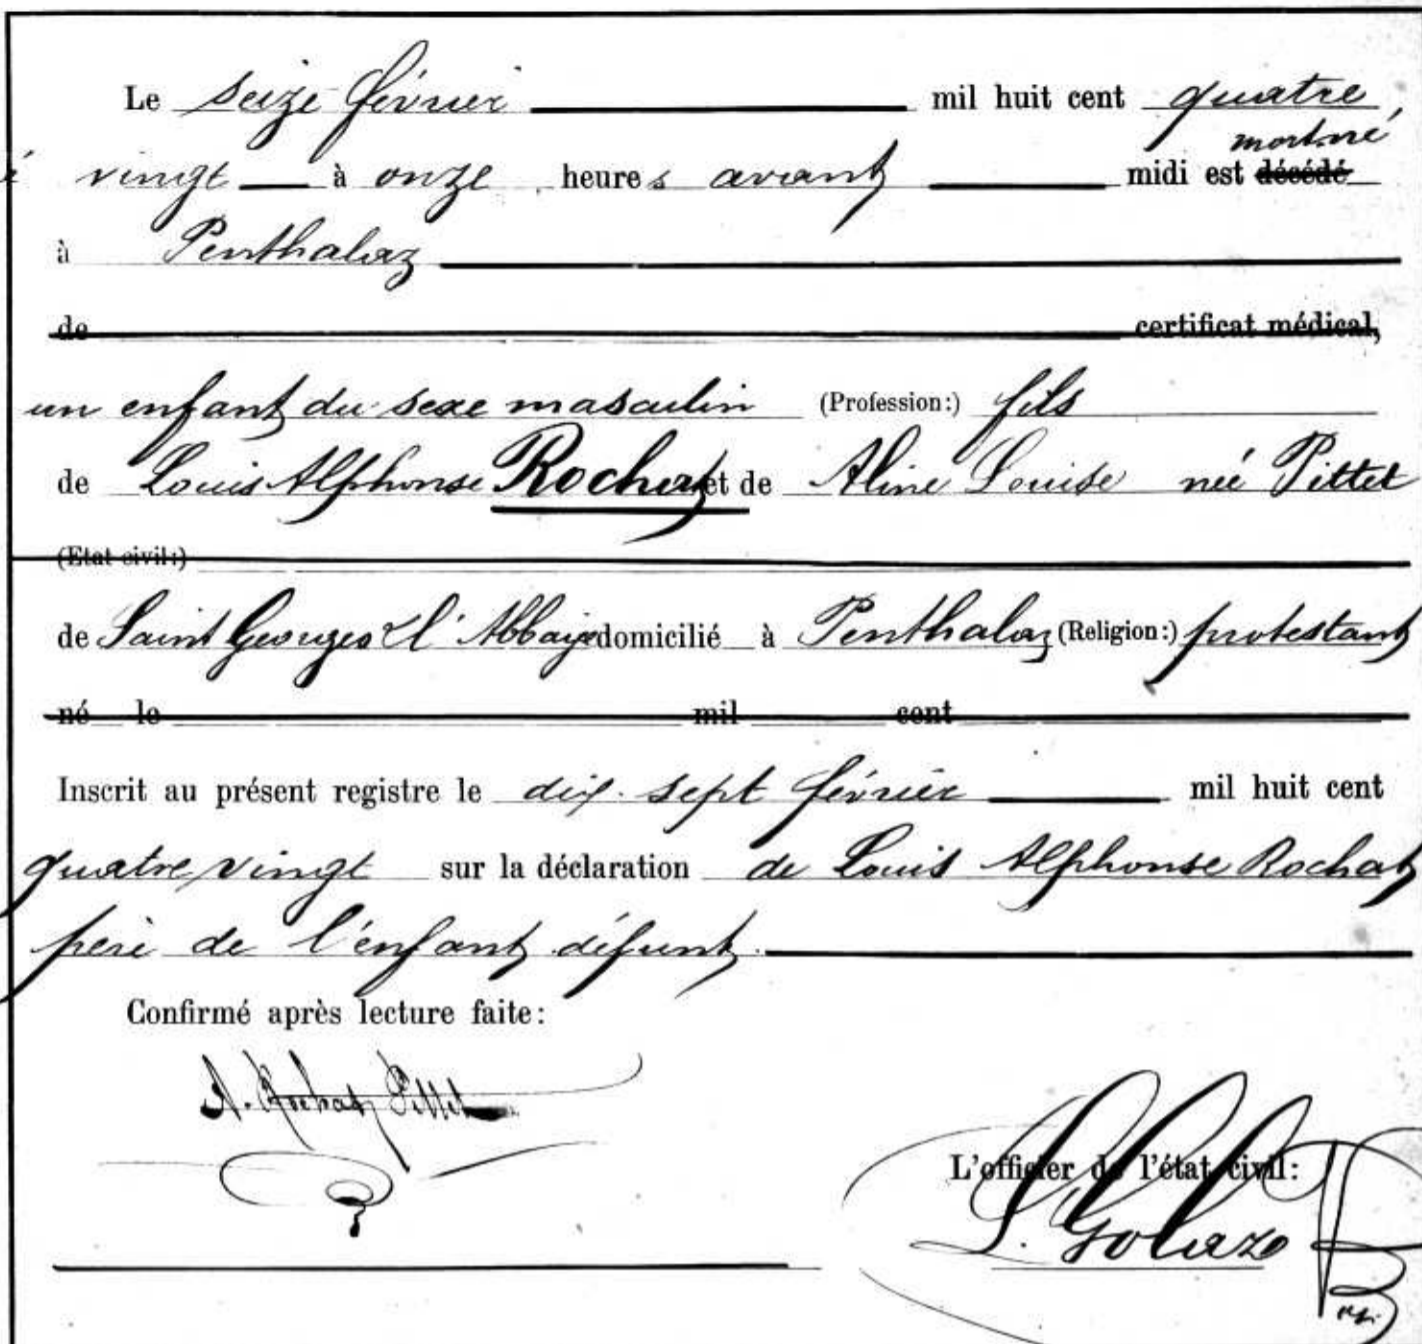 Le seize février mil huit cent quatre
mort-né
vingt à onze heures avant midi est décédé
à Penthalaz
de certificat médical,
un enfant du sexe masculin (Profession:) fils
de Louis Alphonse Rochat et de Aline Louise née Pittet
(Etat civil:)
de Saint Georges & l'Abbaye domicilié à Penthalaz (Religion:) protestant
né le mil cent
Inscrit au présent registre le dix-sept février mil huit cent
quatre vingt sur la déclaration de Louis Alphonse Rochat
père de l'enfant défunt.
Confirmé après lecture faite:
A. Rochat Pittet
L'officier de l'état civil:
L. Golaz